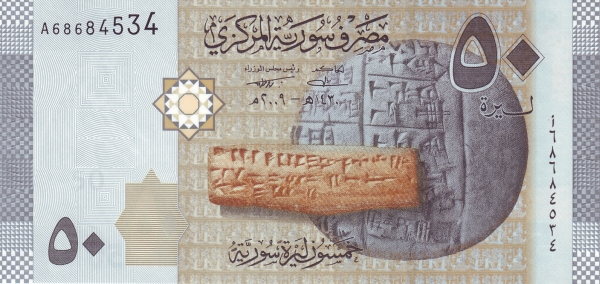 A68684534
مصرف سورية المركزي
٥٠
ليرة
الحاكم
رئيس مجلس الوزراء
١٤٣٠هـ - ٢٠٠٩م
أ٦٨٦٨٤٥٣٤
٥٠
خمسون ليرة سورية